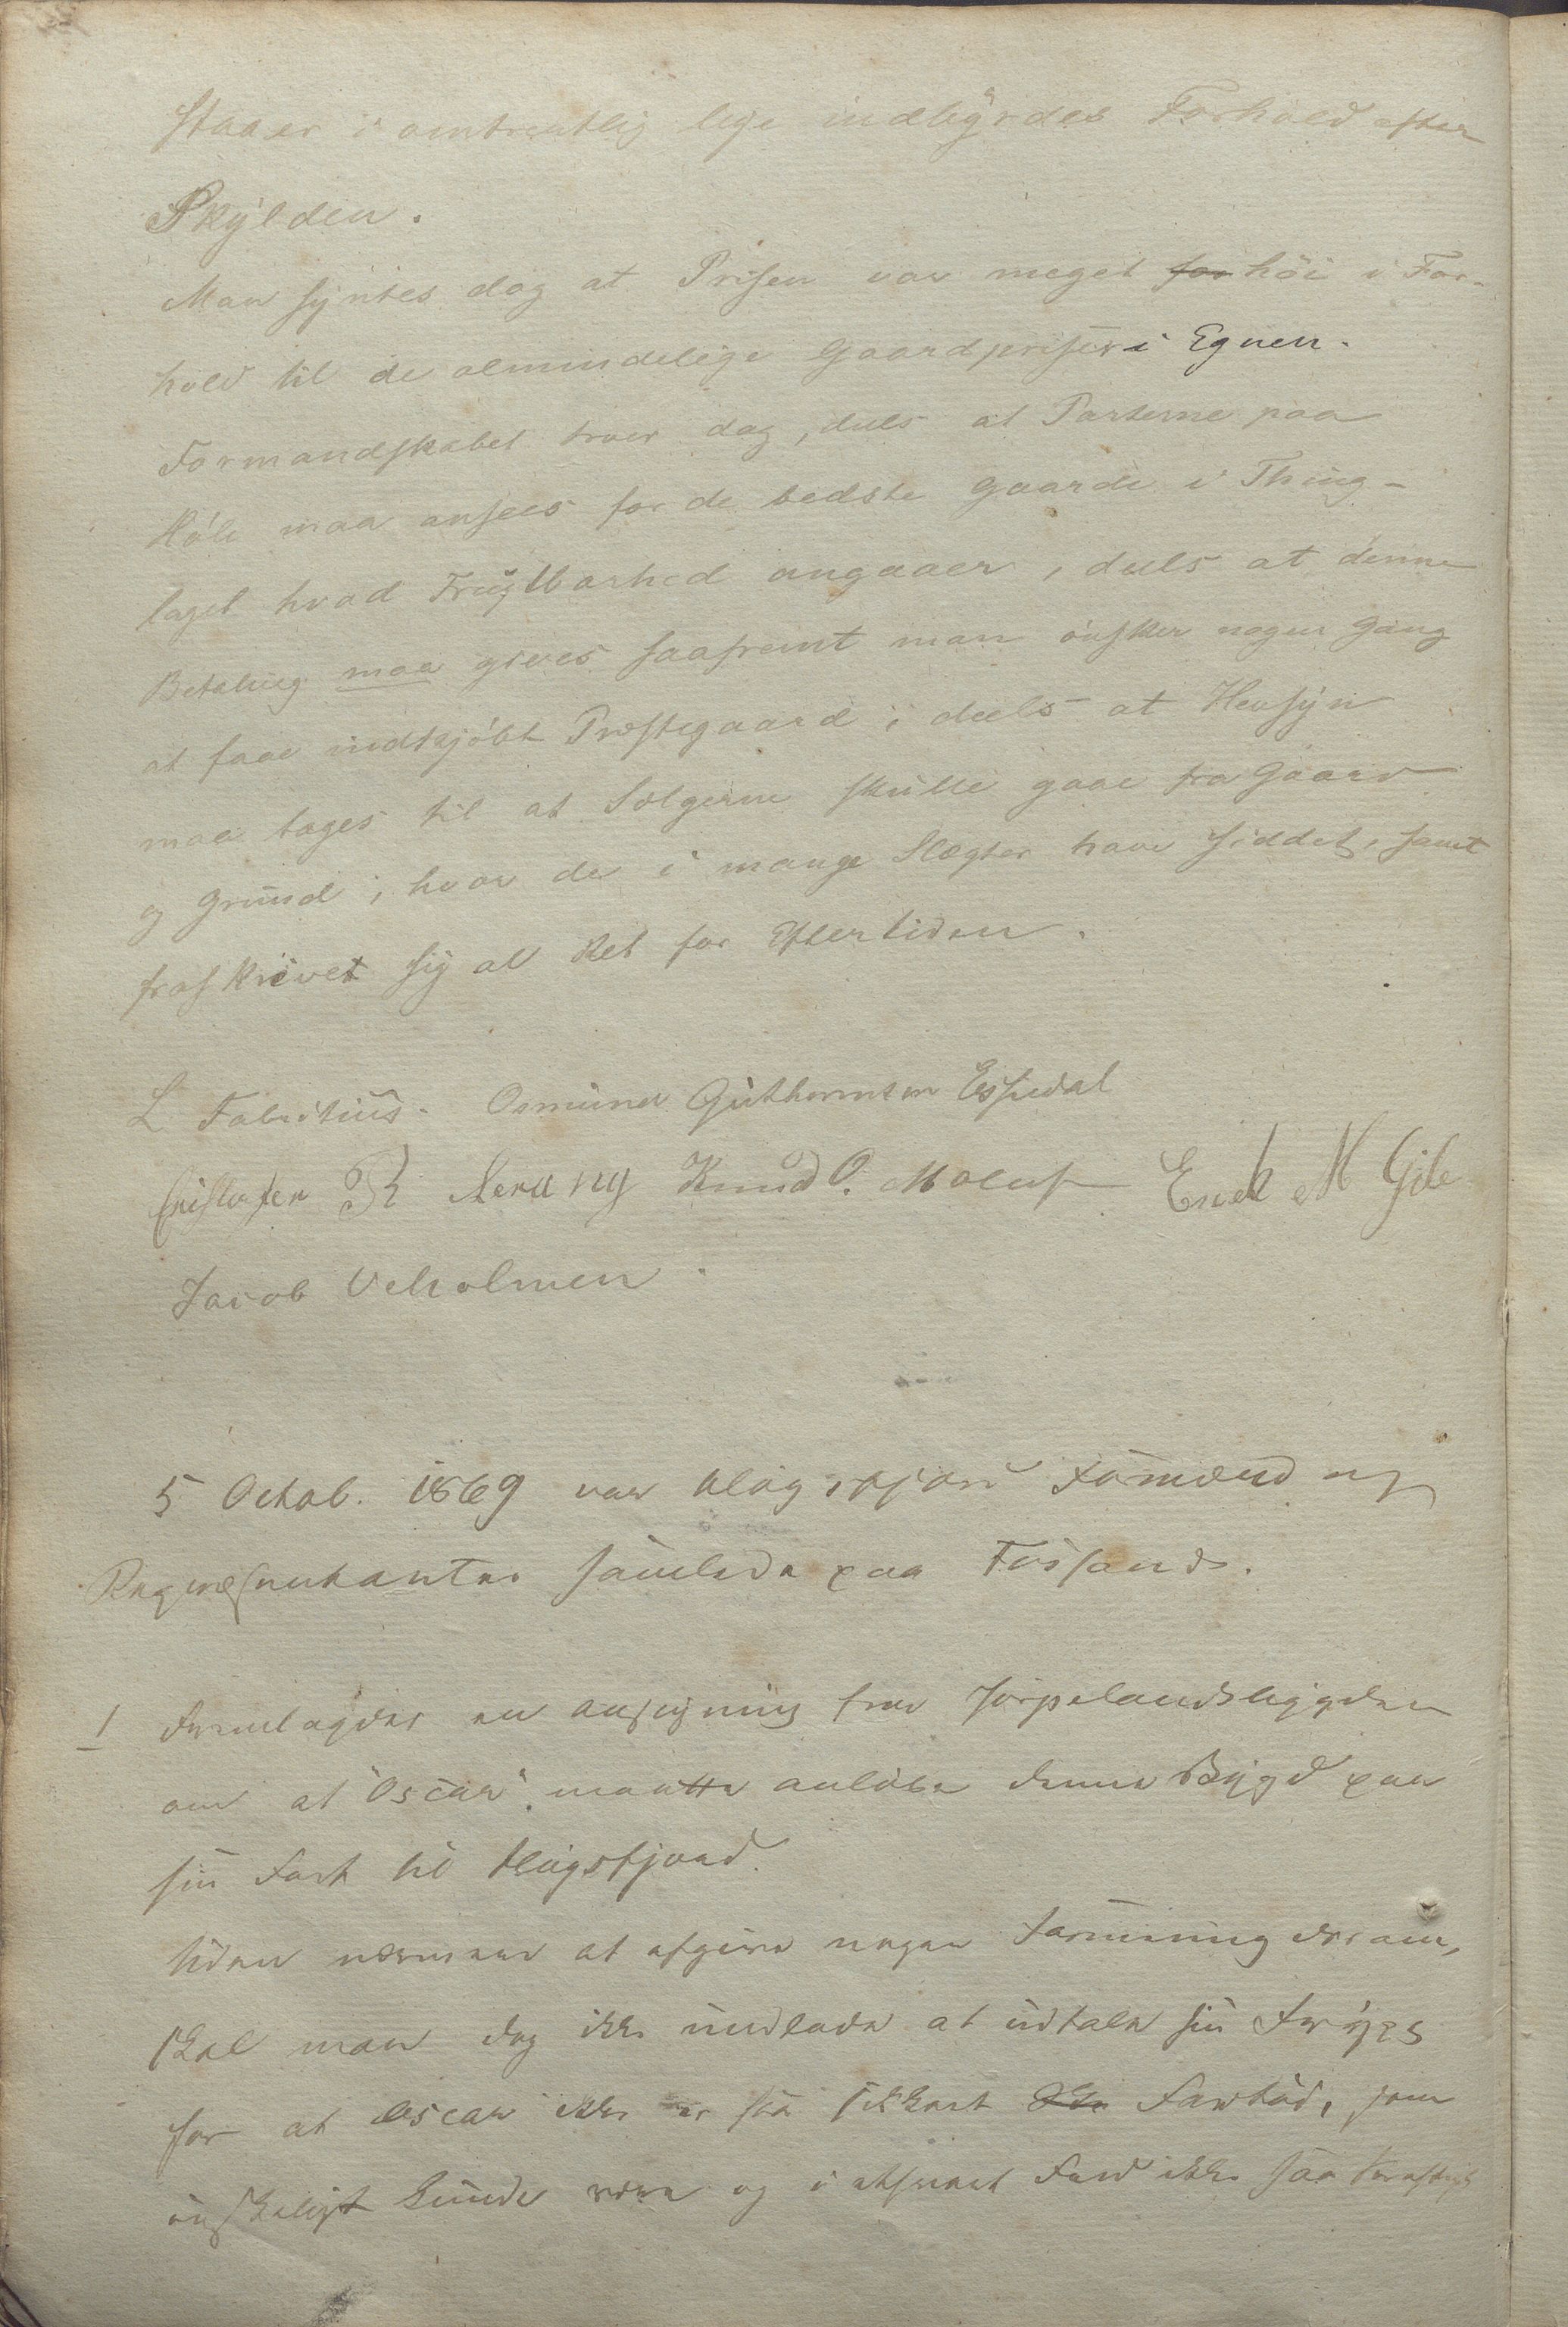 staaer i omtrentlig lige indbyrdes Forhold efter
Skylden.
Man syntes dog at Prisen var meget for höi i For-
hold til de almindelige Gaardpriser i Egnen.
Formandskabet troer dog, deels at Parterne paa
Höle maa ansees for de bedste Gaarde i Thing-
laget hvad Frugtbarhed angaaer, deels at denne
Betaling maa gives saafremt man önsker nogen Gang
at faae indkjöbt Præstegaard; deels at Hensyn
maa tages til at Sælgerne skulle gaae fra Gaard
og Grund, hvor de i mange Slægter have siddet, samt
fraskrivet sig al Ret for Eftertiden.
L Fabritius. Osmund Guthormsen Espedal
Cristofer R Nerung Knud O. Molaug Erick M Gile
Jacob Veholmen.
5 Octob. 1869 var Högsfjord Formænd og
Repræsentanter samlede paa Fossand.
1 Fremlagdes en Ansögning fra Jörpelandsbygden
om at "Oscar" maatte anlöbe denne Bygd paa
sin Fart til Högsfjord.
Uden nærmere at afgive nogen Formening derom,
skal man dog ikke undlade at udtale sin Frygt
for at Oscar ikke er saa sikkert Fartöi, som
önskeligt kunde være og i ethvert Fald ikke saa kraftigt